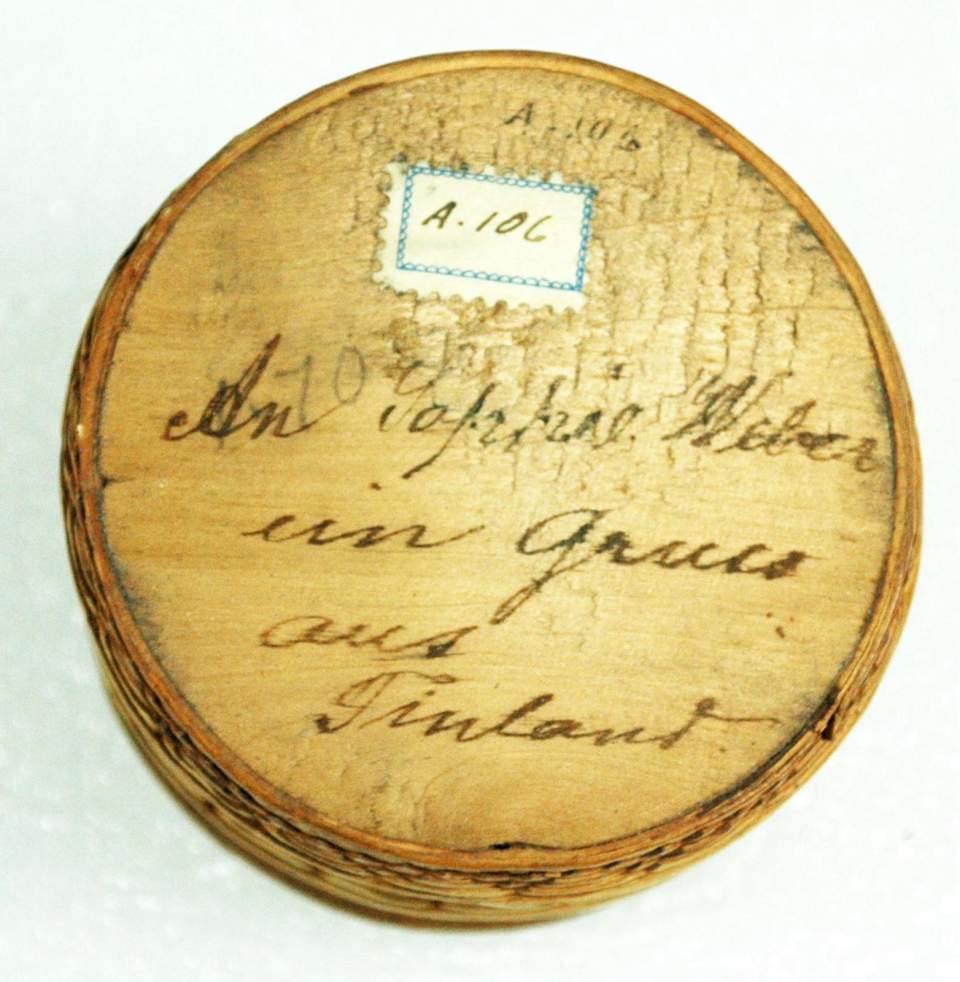 A.106
A.106
70
An Sophie Weber
ein Gruss
aus
Finland